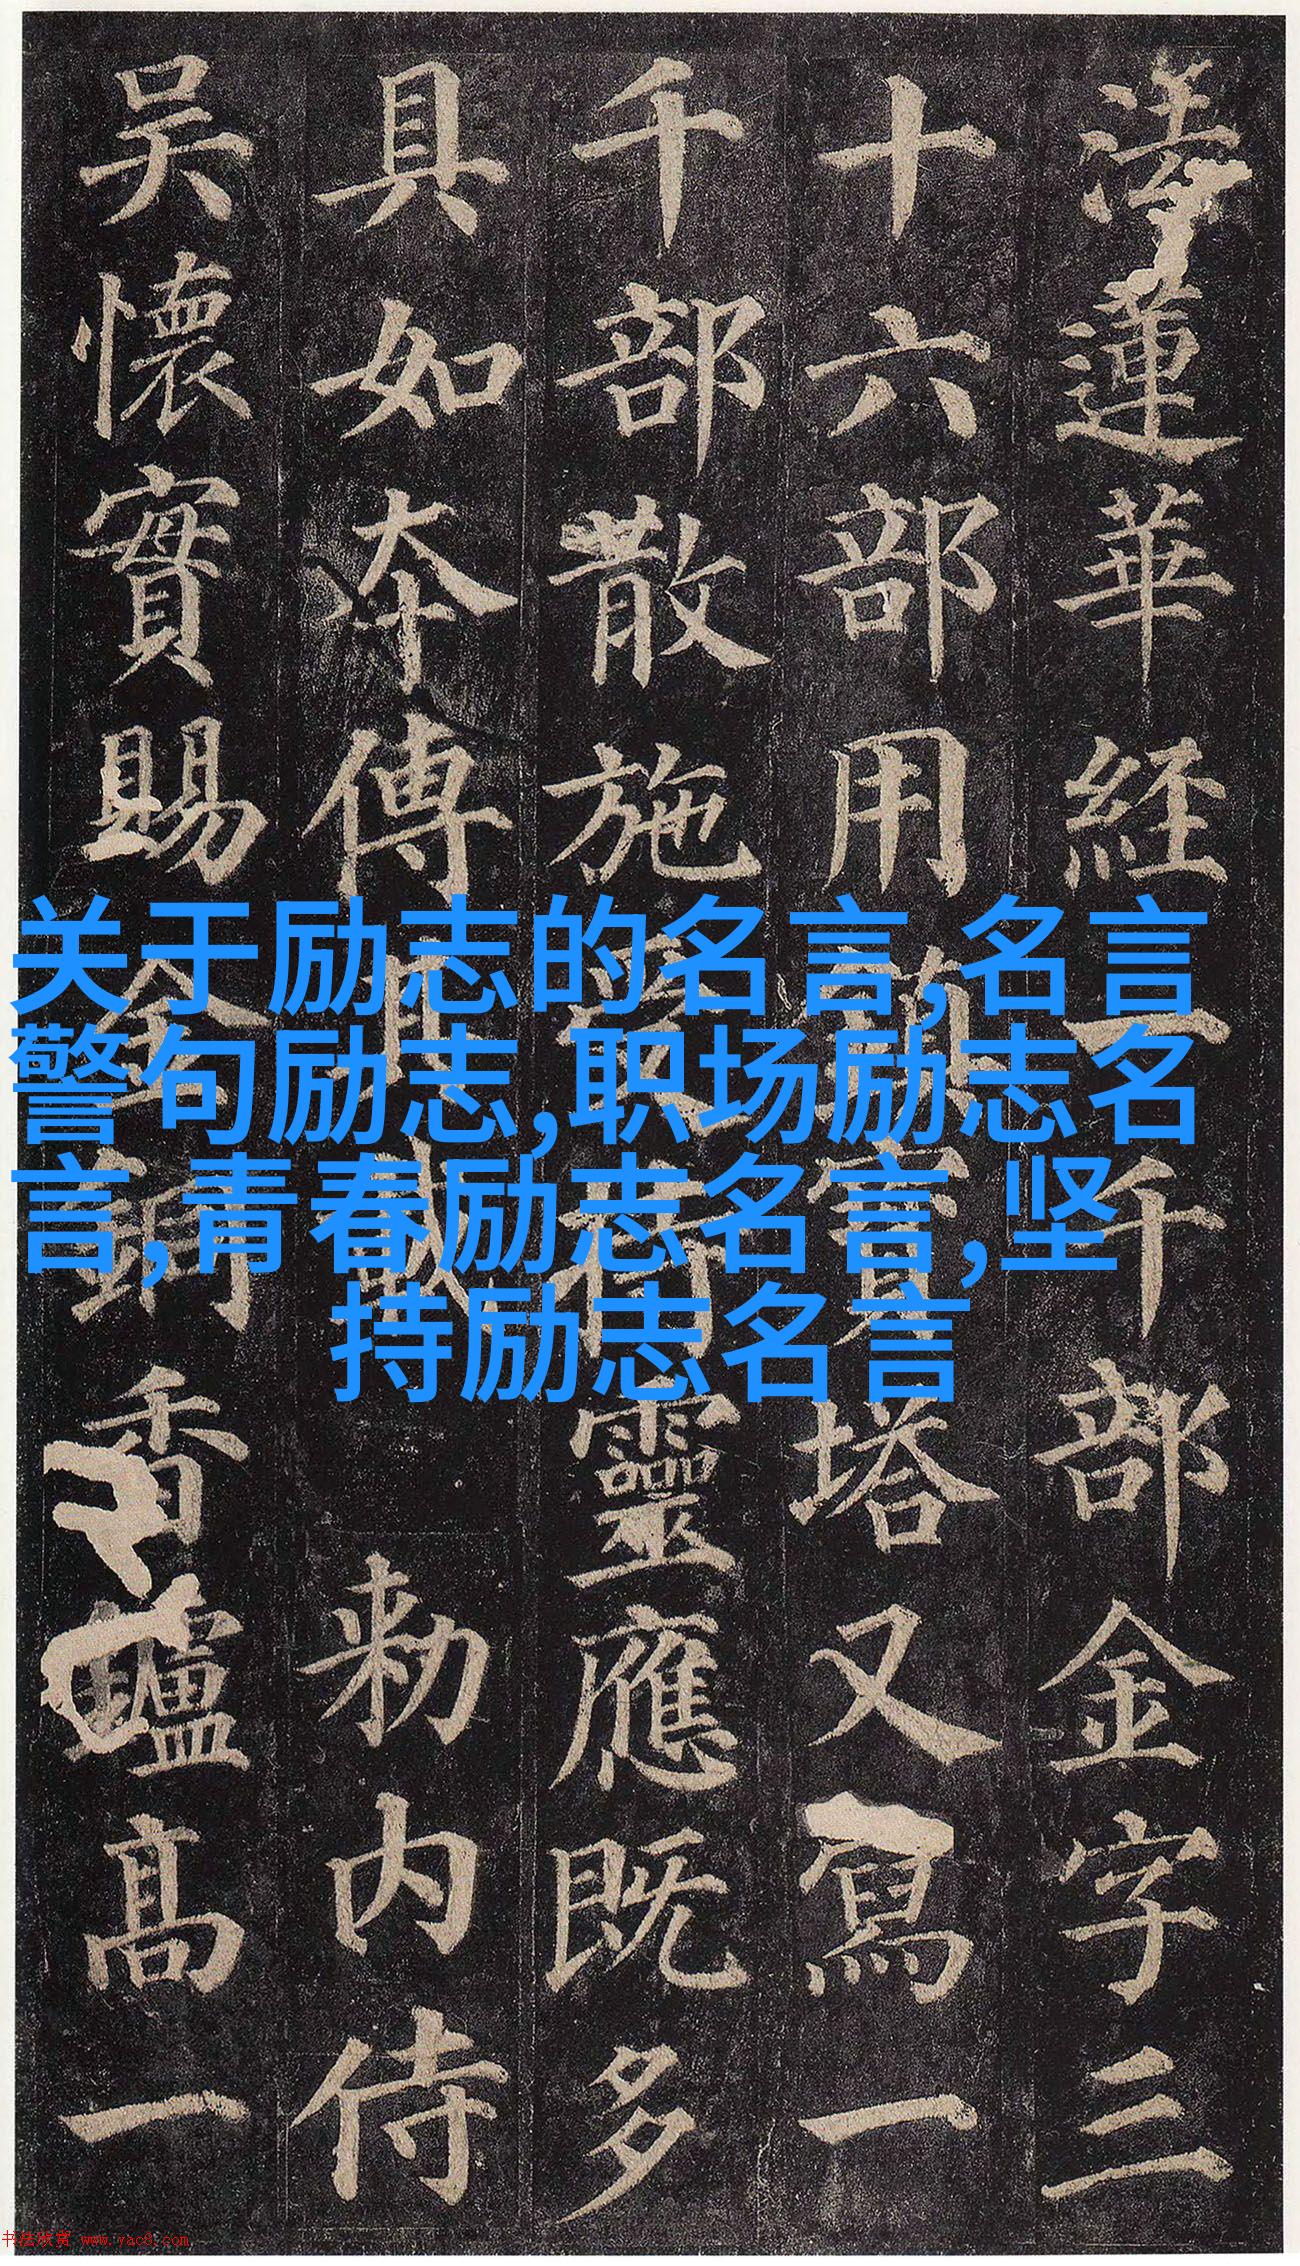 法蓮華經一千部金字三
十六部用鎮寶塔又寫一
千部散施受持靈應既多
具如夲傳其載 勑内侍
吴懷實賜金銅香鑪髙一
关于励志的名言,名言
警句励志,职场励志名
言,青春励志名言,坚
持励志名言
书法欣赏 www.yac8.com